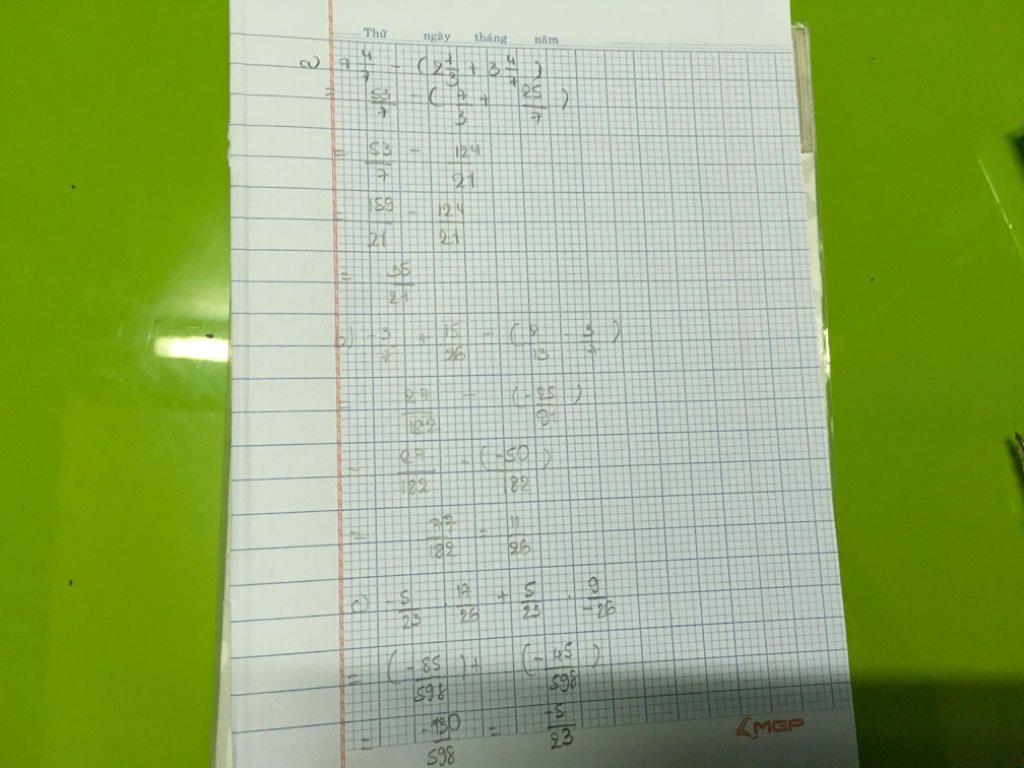 Thứ ngày tháng năm
a) 7 4/7 - (2 1/3 + 3 4/7)
= 53/7 - (7/3 + 25/7)
= 53/7 - 124/21
= 159/21 - 124/21
= 35/21
b) -3/7 + 15/26 - (2/13 - 3/7)
= 27/182 - (-25/91)
= 27/182 - (-50)/182
= 77/182 = 11/26
c) -5/23 . 17/26 + 5/23 . 9/-26
= (-85/598) + (-45/598)
= -130/598 = -5/23
MGP